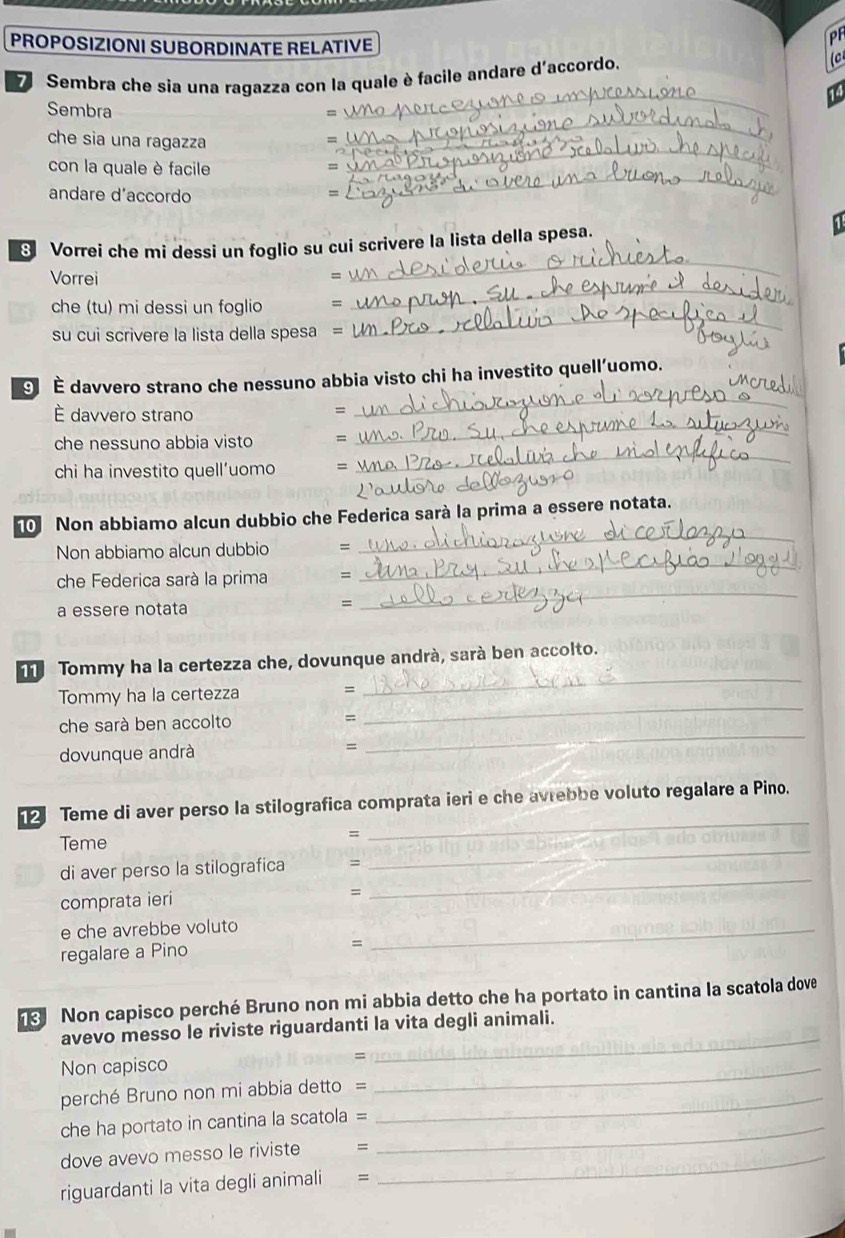 PROPOSIZIONI SUBORDINATE RELATIVE
7 Sembra che sia una ragazza con la quale è facile andare d'accordo.
Sembra = una percezione o impressione
che sia una ragazza = una proposizione subordinata che
specifica la ragazza
con la quale è facile = una proposizione relativa che specifi
la ragazza
andare d'accordo = L'azione di avere una buona relazio
8 Vorrei che mi dessi un foglio su cui scrivere la lista della spesa.
Vorrei = un desiderio o richiesta
che (tu) mi dessi un foglio = una prop. su. che esprime il desider
su cui scrivere la lista della spesa = un. Pro. rellativa che specifica il
foglio
9 È davvero strano che nessuno abbia visto chi ha investito quell'uomo.
È davvero strano = un dichiarazione di sorpresa o incredu
che nessuno abbia visto = una. Pro. su. che esprime la situazione
chi ha investito quell'uomo = una Pro. relativa che indentifica
l'autore dell'azione
10 Non abbiamo alcun dubbio che Federica sarà la prima a essere notata.
Non abbiamo alcun dubbio = una. dichiarazione di certezza
che Federica sarà la prima = una. Pro. su. che specifica l'ogg
a essere notata = della certezza
11 Tommy ha la certezza che, dovunque andrà, sarà ben accolto.
Tommy ha la certezza =
che sarà ben accolto =
dovunque andrà =
12 Teme di aver perso la stilografica comprata ieri e che avrebbe voluto regalare a Pino.
Teme =
di aver perso la stilografica =
comprata ieri =
e che avrebbe voluto
regalare a Pino =
13 Non capisco perché Bruno non mi abbia detto che ha portato in cantina la scatola dove
avevo messo le riviste riguardanti la vita degli animali.
Non capisco =
perché Bruno non mi abbia detto =
che ha portato in cantina la scatola =
dove avevo messo le riviste =
riguardanti la vita degli animali =
PR
14